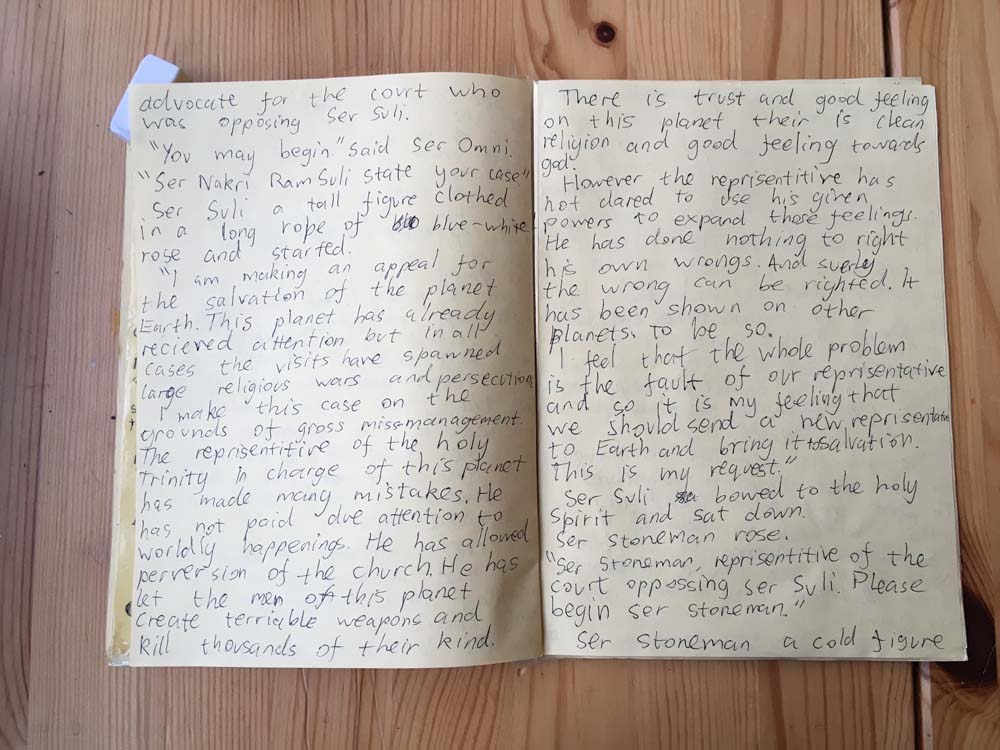 advocate for the court who
was opposing Ser Suli.
"You may begin." said Ser Omni.
"Ser Nakri Ram Suli state your case"
Ser Suli a tall figure clothed
in a long rope of blue-white
rose and started.
"I am making an appeal for
the salvation of the planet
Earth. This planet has already
recieved attention but in all
cases the visits have spawned
large religious wars and persecutions
I make this case on the
grounds of gross miss-management.
The reprisentitive of the holy
trinity in charge of this planet
has made many mistakes. He
has not paid due attention to
worldly happenings. He has allowed
perversion of the church. He has
let the men of this planet
create terriable weapons and
kill thousands of their kind.
There is trust and good feeling
on this planet their is clean
religion and good feeling towards
god.
However the reprisentitive has
not dared to use his given
powers to expand those feelings.
He has done nothing to right
his own wrongs. And suerly
the wrong can be righted. It
has been shown on other
planets. to be so.
I feel that the whole problem
is the fault of our reprisentative
and so it is my feeling that
we should send a new reprisentative
to Earth and bring it to salvation.
This is my request."
Ser Suli bowed to the holy
spirit and sat down.
Ser Stoneman rose.
"Ser Stoneman, reprisentitive of the
court oppossing ser Suli. Please
begin ser stoneman."
Ser Stoneman a cold figure